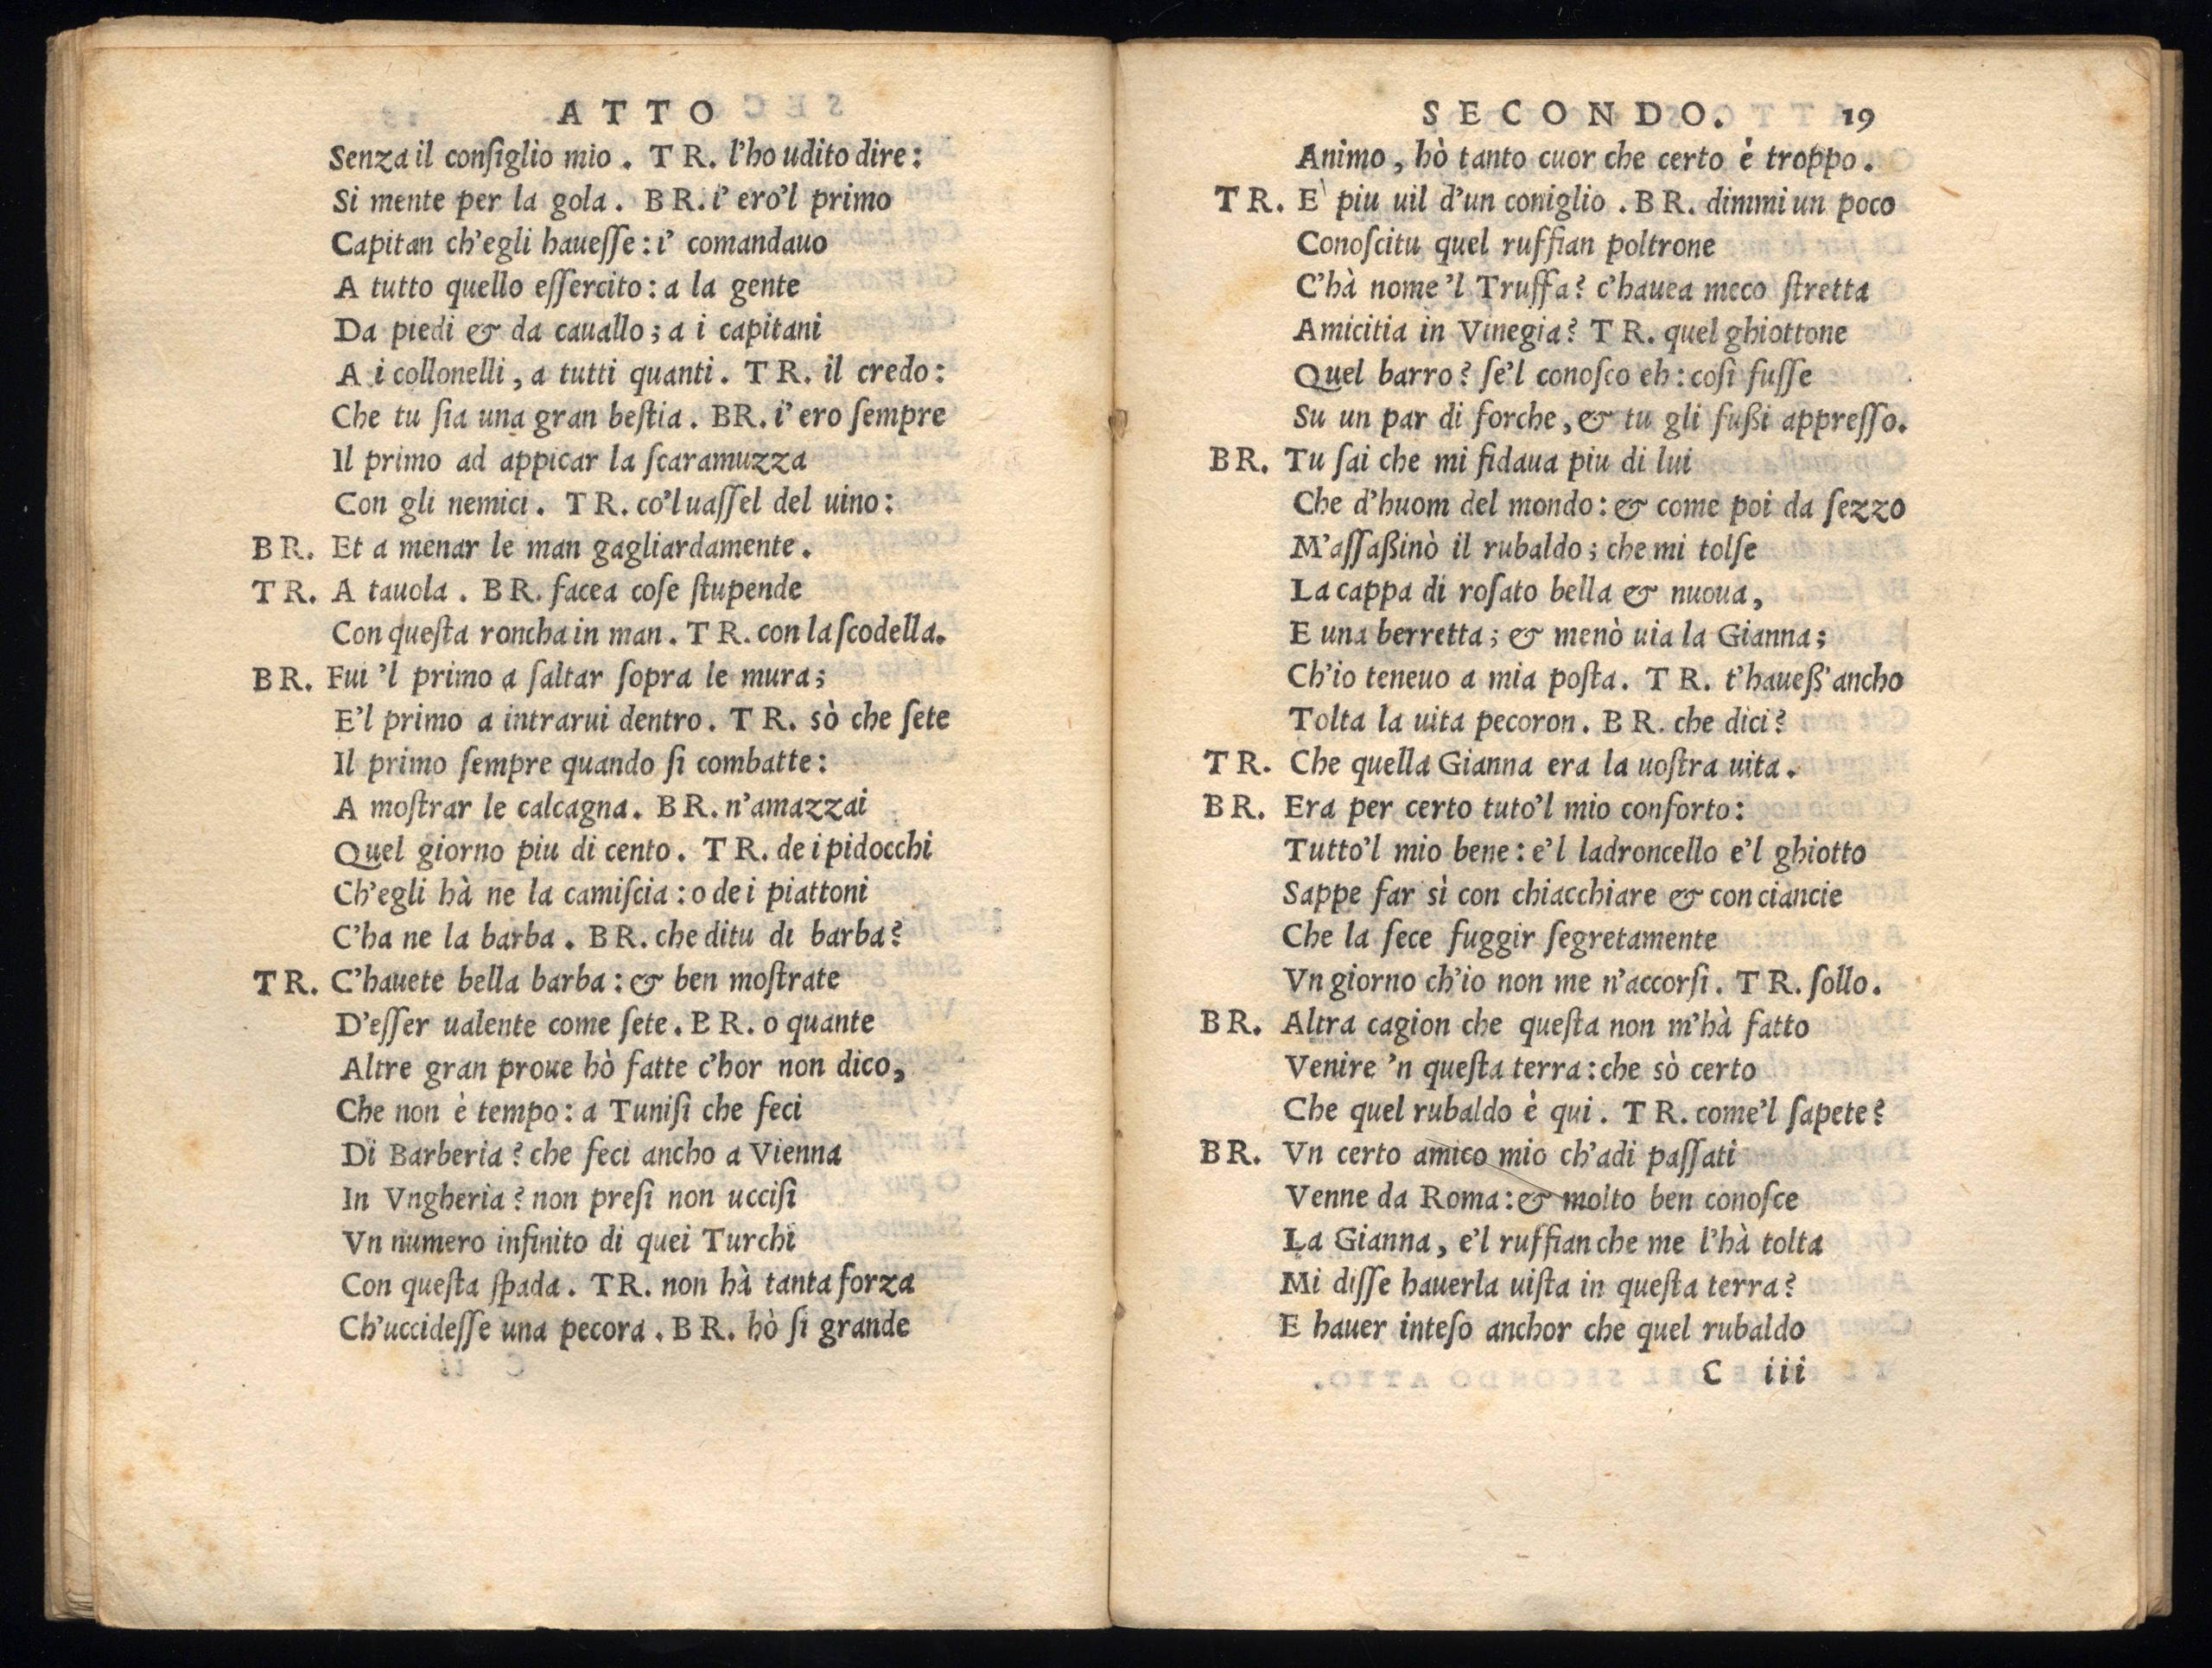 ATTO
Senza il conſiglio mio . TR. l'ho udito dire:
Si mente per la gola . BR. i' ero'l primo
Capitan ch'egli haueſſe: i' comandauo
A tutto quello eſſercito: a la gente
Da piedi & da cauallo; a i capitani
A i collonelli, a tutti quanti. TR. il credo:
Che tu ſia una gran beſtia. BR. i' ero ſempre
Il primo ad appicar la ſcaramuzza
Con gli nemici. TR. co'l uaſſel del uino:
BR. Et a menar le man gagliardamente.
TR. A tauola . BR. facea coſe ſtupende
Con queſta roncha in man. TR. con la ſcodella.
BR. Fui 'l primo a ſaltar ſopra le mura;
E'l primo a intrarui dentro. TR. sò che ſete
Il primo ſempre quando ſi combatte:
A moſtrar le calcagna. BR. n'amazzai
Quel giorno piu di cento. TR. de i pidocchi
Ch'egli hà ne la camiſcia: o de i piattoni
C'ha ne la barba. BR. che ditu di barba?
TR. C'hauete bella barba: & ben moſtrate
D'eſſer ualente come ſete. BR. o quante
Altre gran proue hò fatte c'hor non dico,
Che non è tempo: a Tuniſi che feci
Di Barberia? che feci ancho a Vienna
In Vngheria? non preſi non ucciſi
Vn numero infinito di quei Turchi
Con queſta ſpada. TR. non hà tanta forza
Ch'uccideſſe una pecora. BR. hò ſi grande
SECONDO. 19
Animo, hò tanto cuor che certo è troppo.
TR. E` piu uil d'un coniglio . BR. dimmi un poco
Conoſcitu quel ruffian poltrone
C'hà nome 'l Truffa? c'hauea meco ſtretta
Amicitia in Vinegia? TR. quel ghiottone
Quel barro? ſe'l conoſco eh: coſi fuſſe
Su un par di forche, & tu gli fußi appreſſo.
BR. Tu ſai che mi fidaua piu di lui
Che d'huom del mondo: & come poi da ſezzo
M'aſſaßinò il rubaldo; che mi tolſe
La cappa di roſato bella & nuoua,
E una berretta; & menò uia la Gianna;
Ch'io teneuo a mia poſta. TR. t'haueß'ancho
Tolta la uita pecoron. BR. che dici?
TR. Che quella Gianna era la uoſtra uita.
BR. Era per certo tuto'l mio conforto:
Tutto'l mio bene: e'l ladroncello e'l ghiotto
Sappe far sì con chiacchiare & con ciancie
Che la fece fuggir ſegretamente
Vn giorno ch'io non me n'accorſi. TR. ſollo.
BR. Altra cagion che queſta non m'hà fatto
Venire 'n queſta terra: che sò certo
Che quel rubaldo è qui. TR. come'l ſapete?
BR. Vn certo amico mio ch'adi paſſati
Venne da Roma: & molto ben conoſce
La Gianna, e'l ruffian che me l'hà tolta
Mi diſſe hauerla uiſta in queſta terra?
E hauer inteſo anchor che quel rubaldo
C iii